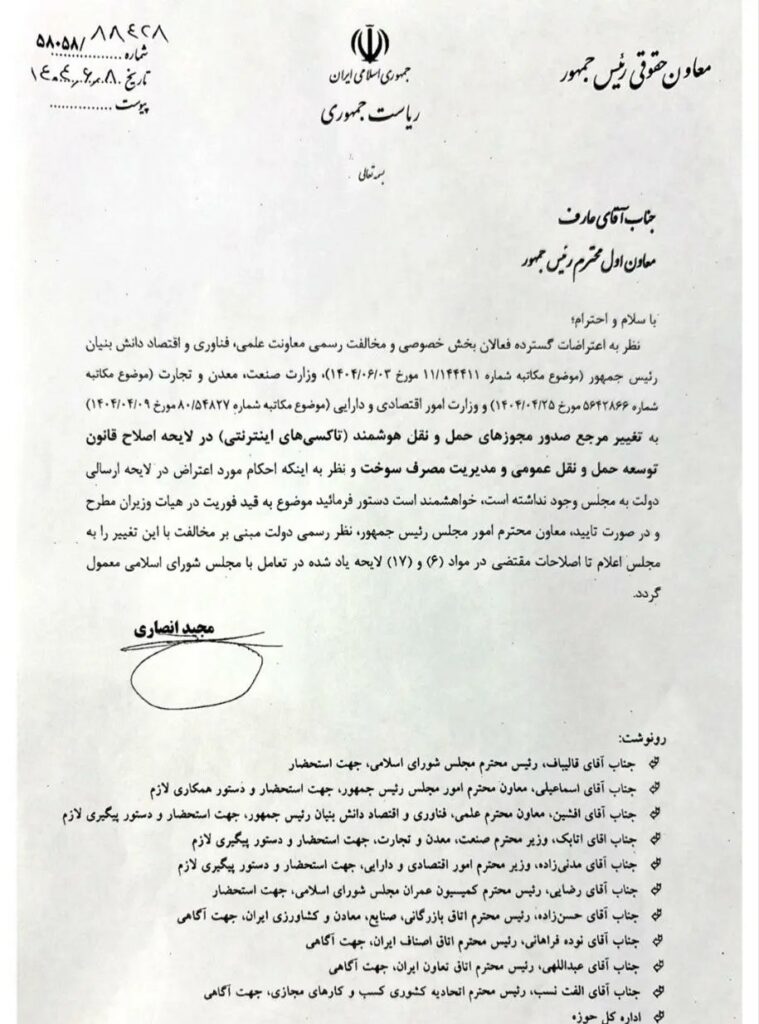 ۵۸۰۵۸/۸۸۴۲۸
شماره
تاریخ ۱۴۰۴،۶،۸
پیوست
جمهوری اسلامی ایران
ریاست جمهوری
معاون حقوقی رئیس جمهور
بسمه تعالی
جناب آقای عارف
معاون اول محترم رئیس جمهور
با سلام و احترام؛
نظر به اعتراضات گسترده فعالان بخش خصوصی و مخالفت رسمی معاونت علمی، فناوری و اقتصاد دانش بنیان
رئیس جمهور (موضوع مکاتبه شماره ۱۱/۱۴۴۴۱۱ مورخ ۱۴۰۴/۰۶/۰۳)، وزارت صنعت، معدن و تجارت (موضوع مکاتبه
شماره ۵۶۴۲۸۶۶ مورخ ۱۴۰۴/۰۴/۲۵) و وزارت امور اقتصادی و دارایی (موضوع مکاتبه شماره ۸۰/۵۴۸۲۷ مورخ ۱۴۰۴/۰۴/۰۹)
به تغییر مرجع صدور مجوزهای حمل و نقل هوشمند (تاکسی‌های اینترنتی) در لایحه اصلاح قانون
توسعه حمل و نقل عمومی و مدیریت مصرف سوخت و نظر به اینکه احکام مورد اعتراض در لایحه ارسالی
دولت به مجلس وجود نداشته است، خواهشمند است دستور فرمائید موضوع به قید فوریت در هیات وزیران مطرح
و در صورت تایید، معاون محترم امور مجلس رئیس جمهور، نظر رسمی دولت مبنی بر مخالفت با این تغییر را به
مجلس اعلام تا اصلاحات مقتضی در مواد (۶) و (۱۷) لایحه یاد شده در تعامل با مجلس شورای اسلامی معمول
گردد.
مجید انصاری
رونوشت:
جناب آقای قالیباف، رئیس محترم مجلس شورای اسلامی، جهت استحضار
جناب آقای اسماعیلی، معاون محترم امور مجلس رئیس جمهور، جهت استحضار و دستور همکاری لازم
جناب آقای افشین، معاون محترم علمی، فناوری و اقتصاد دانش بنیان رئیس جمهور، جهت استحضار و دستور پیگیری لازم
جناب اقای اتابک، وزیر محترم صنعت، معدن و تجارت، جهت استحضار و دستور پیگیری لازم
جناب آقای مدنی‌زاده، وزیر محترم امور اقتصادی و دارایی، جهت استحضار و دستور پیگیری لازم
جناب آقای رضایی، رئیس محترم کمیسیون عمران مجلس شورای اسلامی، جهت استحضار
جناب آقای حسن‌زاده، رئیس محترم اتاق بازرگانی، صنایع، معادن و کشاورزی ایران، جهت آگاهی
جناب آقای نوده فراهانی، رئیس محترم اتاق اصناف ایران، جهت آگاهی
جناب آقای عبداللهی، رئیس محترم اتاق تعاون ایران، جهت آگاهی
جناب آقای الفت نسب، رئیس محترم اتحادیه کشوری کسب و کارهای مجازی، جهت آگاهی
اداره کل حوزه